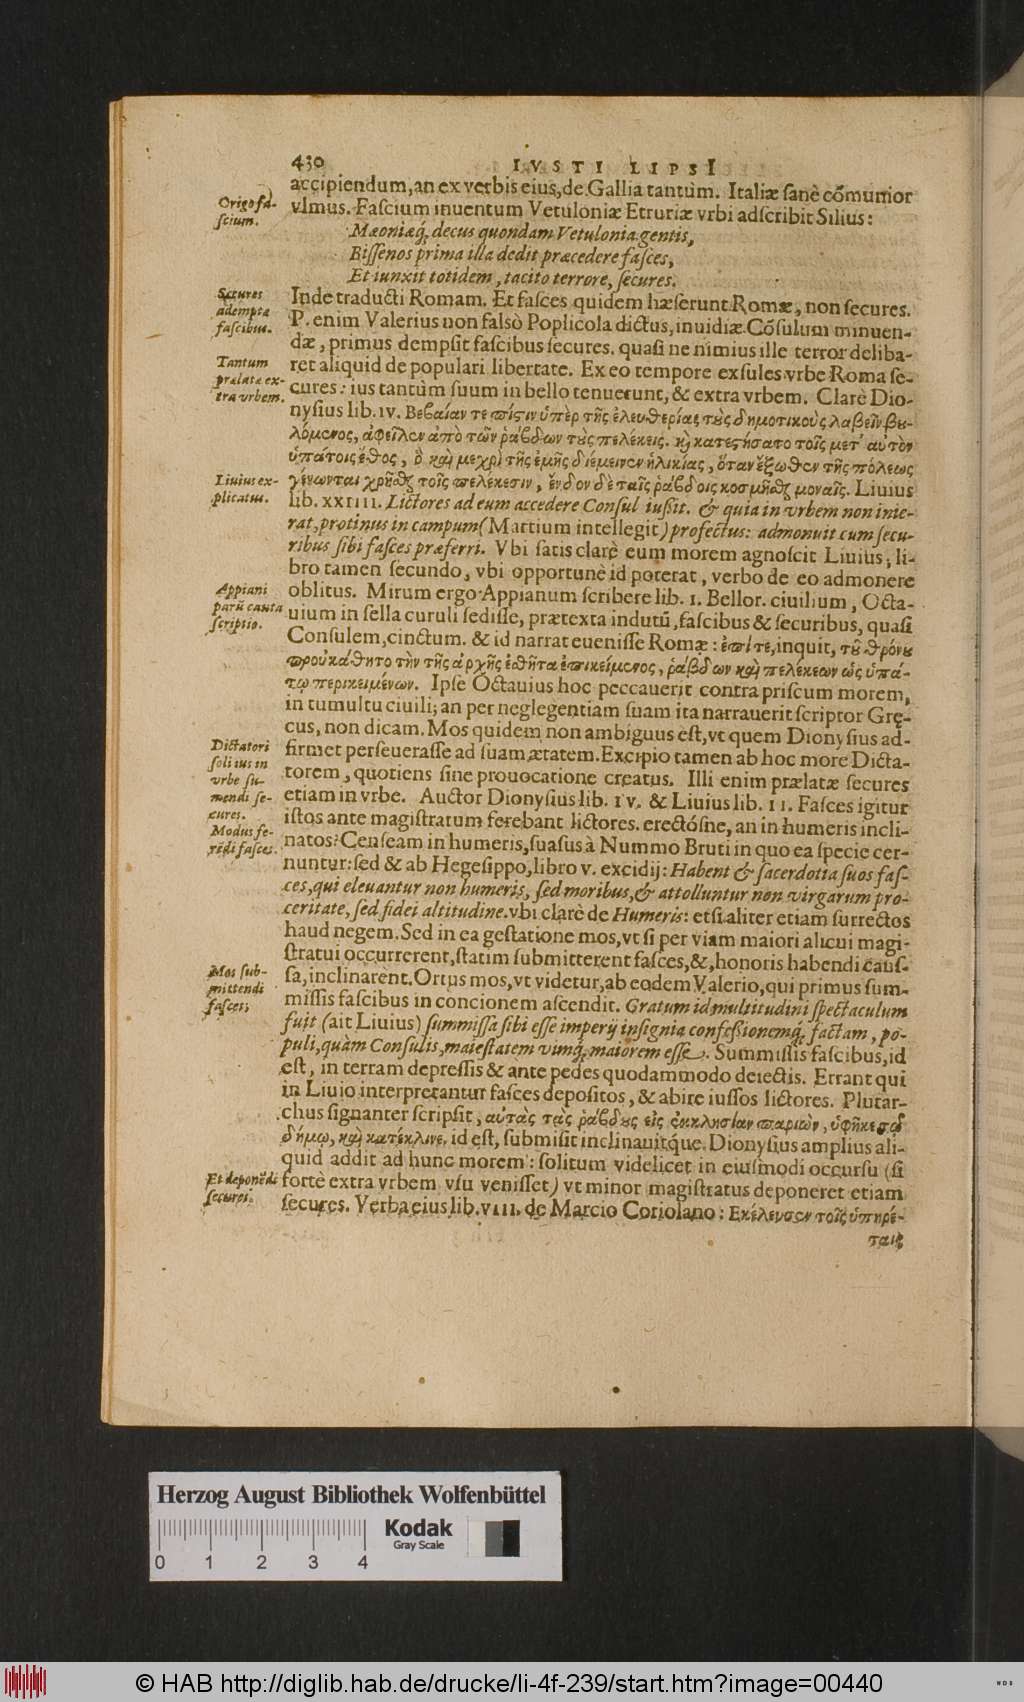 430 IVSTI LIPSI
accipiendum, an ex verbis eius, de Gallia tantùm. Italiæ sanè cõmunior
Origo fa-
scium.
vlmus. Fascium inuentum Vetuloniæ Etruriæ vrbi adscribit Silius:
Mæoniæq́; decus quondam Vetulonia gentis,
Bissenos prima illa dedit præcedere fasces,
Et iunxit totidem, tacito terrore, secures.
Secures
adempta
fascibus.
Inde traducti Romam. Et fasces quidem hæserunt Romæ, non secures.
P. enim Valerius non falsò Poplicola dictus, inuidiæ Cõsulum minuen-
dæ, primus dempsit fascibus secures. quasi ne nimius ille terror deliba-
Tantum
prælatæ ex-
tra vrbem.
ret aliquid de populari libertate. Ex eo tempore exsules vrbe Roma se-
cures: ius tantùm suum in bello tenuerunt, & extra vrbem. Clarè Dio-
nysius lib. IV. Βεβαίαν τε πίςιν ὑπὲρ τῆς ἐλευθερίας τοὺς δημοτικοὺς λαβεῖν βου-
λόμενος, ἀφεῖλεν ἀπὸ τῶν ῥάβδων τοὺς πελέκεις. καὶ κατεςήσατο τοῖς μετ' αὐτὸν
ὑπάτοις ἔθος, ὃ καὶ μεχρὶ τῆς ἐμῆς διέμεινεν ἡλικίας, ὅταν ἔξωθεν τῆς πόλεως
Liuius ex-
plicatus.
γένωνται χρῆσθαι τοῖς πελέκεσιν, ἔνδον δὲ ταῖς ῥάβδοις κοσμῆσθαι μοναῖς. Liuius
lib. XXIIII. Lictores ad eum accedere Consul iussit. & quia in vrbem non inie-
rat, protinus in campum (Martium intellegit) profectus: admonuit cum secu-
ribus sibi fasces præferri. Vbi satis clarè eum morem agnoscit Liuius; li-
bro tamen secundo, vbi opportunè id poterat, verbo de eo admonere
Appiani
parũ cauta
scriptio.
oblitus. Mirum ergo Appianum scribere lib. I. Bellor. ciuilium, Octa-
uium in sella curuli sedisse, prætexta indutũ, fascibus & securibus, quasi
Consulem, cinctum. & id narrat euenisse Romæ: ἐπί τε, inquit, τοῦ θρόνου
προὐκάθητο τὴν τῆς ἀρχῆς ἐσθῆτα ἐπικείμενος, ῥάβδων καὶ πελέκεων ὡς ὑπά-
τῳ περικειμένων. Ipse Octauius hoc peccauerit contra priscum morem,
in tumultu ciuili; an per neglegentiam suam ita narrauerit scriptor Gręę-
cus, non dicam. Mos quidem non ambiguus est, vt quem Dionysius ad-
Dictatori
soli ius in
vrbe su-
mendi se-
cures.
firmet perseuerasse ad suam ætatem. Excipio tamen ab hoc more Dicta-
torem, quotiens sine prouocatione creatus. Illi enim prælatæ secures
etiam in vrbe. Auctor Dionysius lib. IV. & Liuius lib. II. Fasces igitur
istos ante magistratum ferebant lictores. erectósne, an in humeris incli-
Modus fe-
rēdi fasces.
natos? Censeam in humeris, suasus à Nummo Bruti in quo ea specie cer-
nuntur: sed & ab Hegesippo, libro V. excidij: Habent & sacerdotia suos fas-
ces, qui eleuantur non humeris, sed moribus, & attolluntur non virgarum pro-
ceritate, sed fidei altitudine. vbi clarè de Humeris: etsi aliter etiam surrectos
haud negem. Sed in ea gestatione mos, vt si per viam maiori alicui magi-
stratui occurrerent, statim submitterent fasces, &, honoris habendi caus-
Mos sub-
mittendi
fasces;
sa, inclinarent. Ortus mos, vt videtur, ab eodem Valerio, qui primus sum-
missis fascibus in concionem ascendit. Gratum id multitudini spectaculum
fuit (ait Liuius) summissa sibi esse imperij insignia confeßionemq́; factam, po-
puli, quàm Consulis, maiestatem vimq́; maiorem esse. Summissis fascibus, id
est, in terram depressis & ante pedes quodammodo deiectis. Errant qui
in Liuio interpretantur fasces depositos, & abire iussos lictores. Plutar-
chus signanter scripsit, αὐτὰς τὰς ῥάβδους εἰς ἐκκλησίαν παριὼν, ὑφῆκε τῷ
δήμῳ, καὶ κατέκλινε. id est, submisit inclinauitq́ue. Dionysius amplius ali-
quid addit ad hunc morem: solitum videlicet in eiusmodi occursu (si
Et deponēdi
secures.
fortè extra vrbem vsu venisset) vt minor magistratus deponeret etiam
secures. Verba eius lib. VIII. de Marcio Coriolano: Εκέλευσεν τοῖς ὑπηρέ-
ταις
Herzog August Bibliothek Wolfenbüttel
Kodak
Gray Scale
0 1 2 3 4
© HAB http://diglib.hab.de/drucke/li-4f-239/start.htm?image=00440